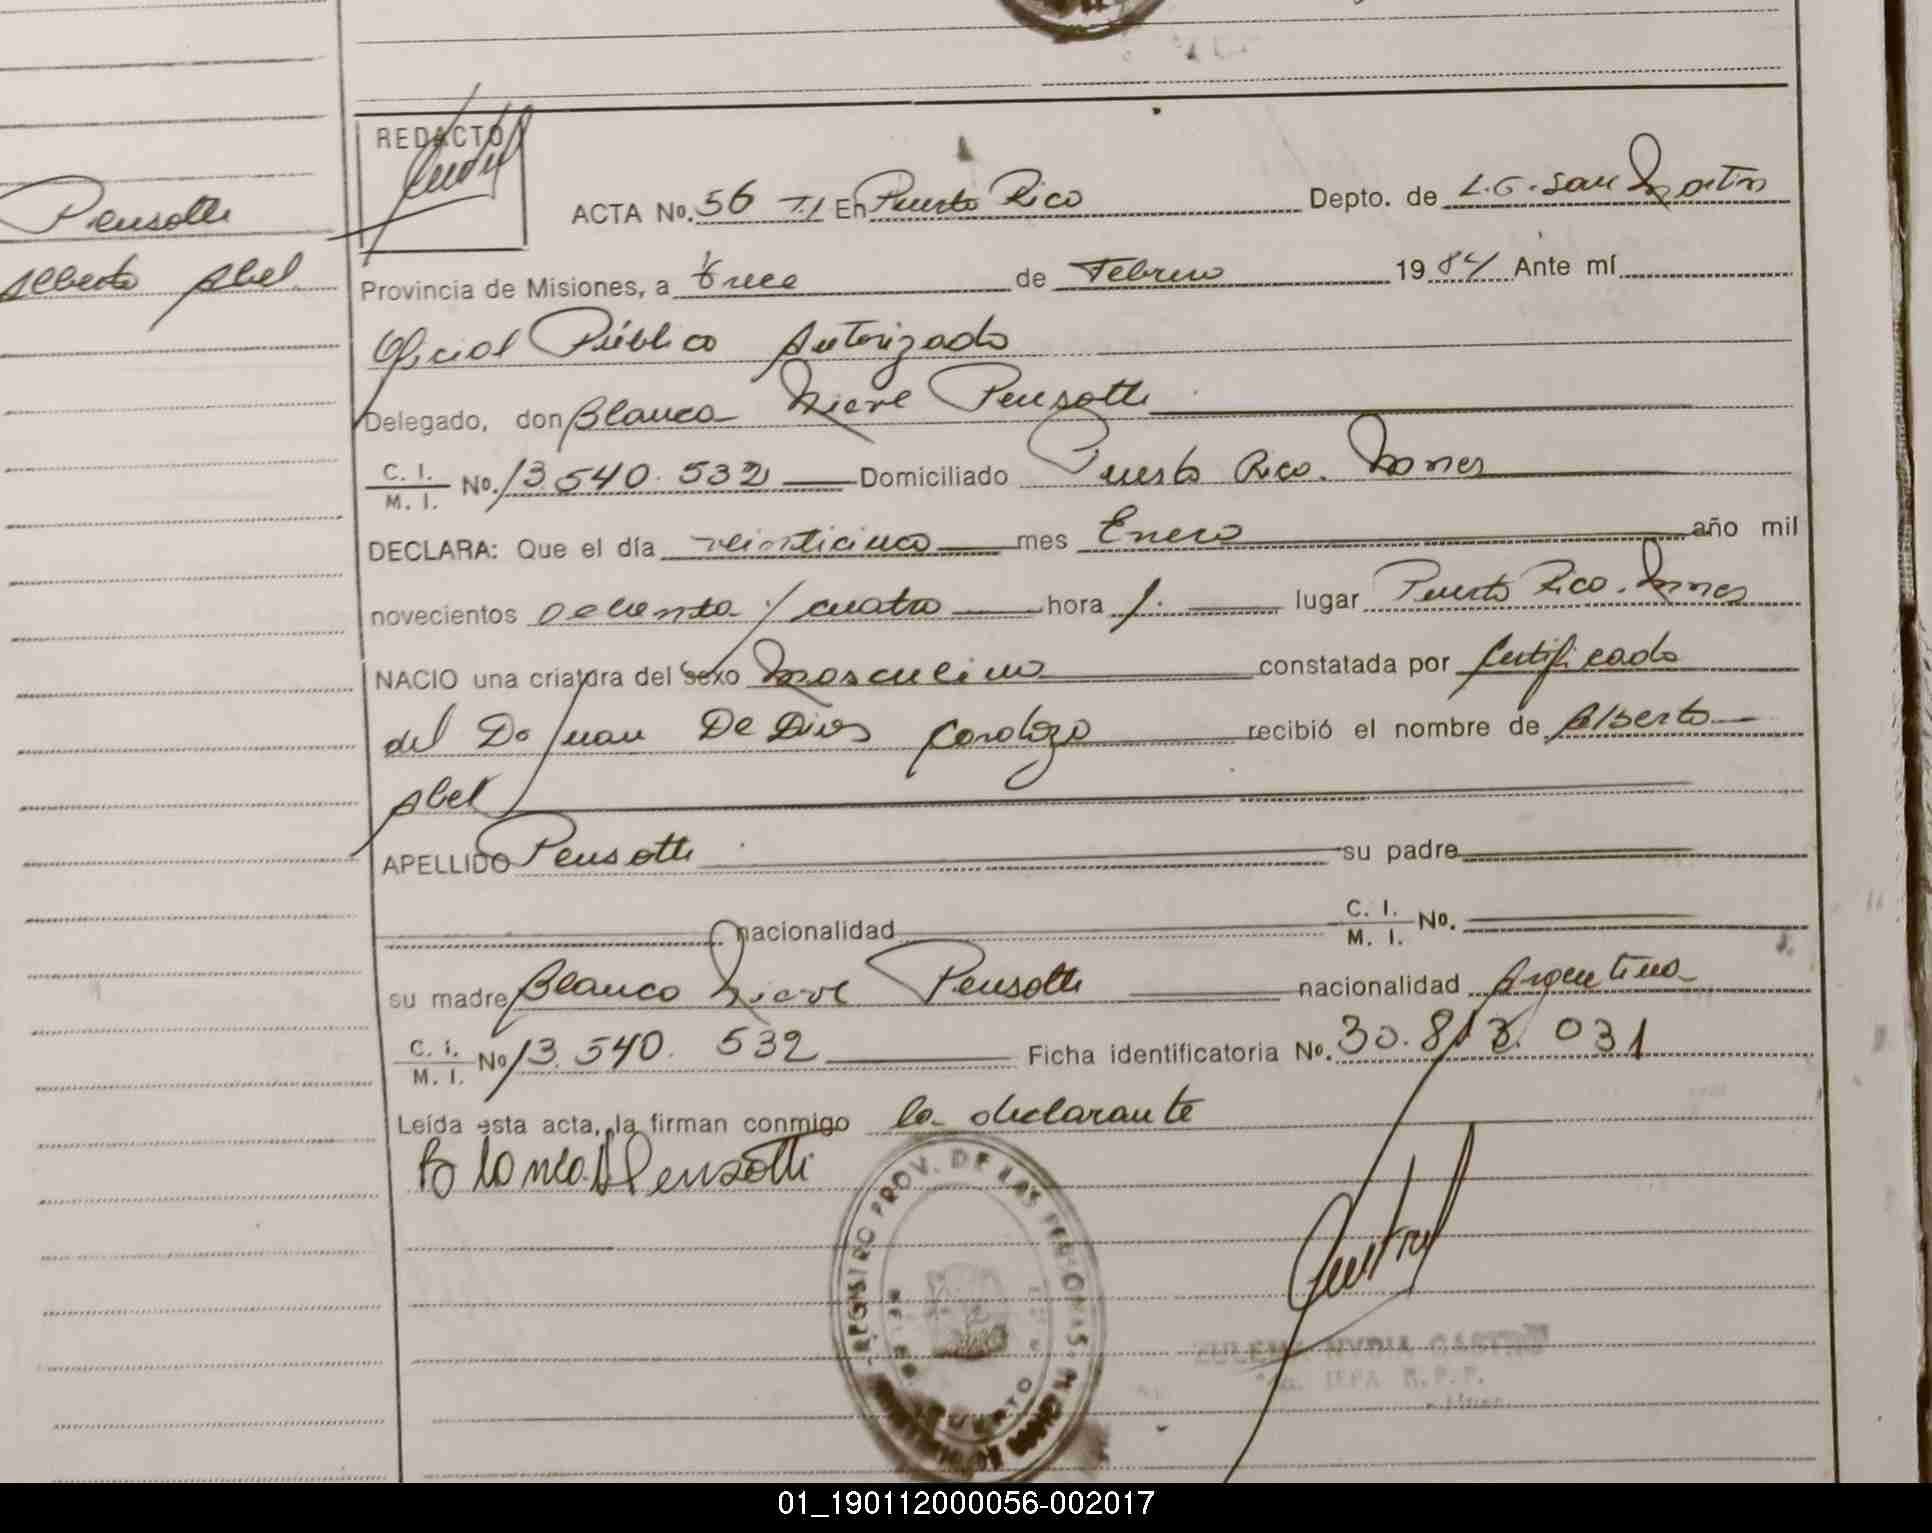 REDACTO
Pensotti
Alberto Abel
ACTA No. 56 T I En Puerto Rico Depto. de L. G. San Martin
Provincia de Misiones, a trece de Febrero 19 84 Ante mí
Oficial Público Autorizado
Delegado, don Blanca Nieve Pensotti
C. I. / M. I. No. 13.540.532 Domiciliado Puerto Rico. Mnes
DECLARA: Que el día veinticinco mes Enero año mil
novecientos ochenta y cuatro hora 1. lugar Puerto Rico. Mnes
NACIO una criatura del sexo Masculino constatada por Certificado
del Dr Juan De Dios Cardozo recibió el nombre de Alberto
Abel
APELLIDO Pensotti su padre
nacionalidad C. I. / M. I. No.
su madre Blanca Nieve Pensotti nacionalidad Argentina
C. I. / M. I. No 13.540.532 Ficha identificatoria No. 30.813.031
Leída esta acta, la firman conmigo la declarante
Blanca N Pensotti
REGISTRO PROV. DE LAS PERSONAS
01_190112000056-002017